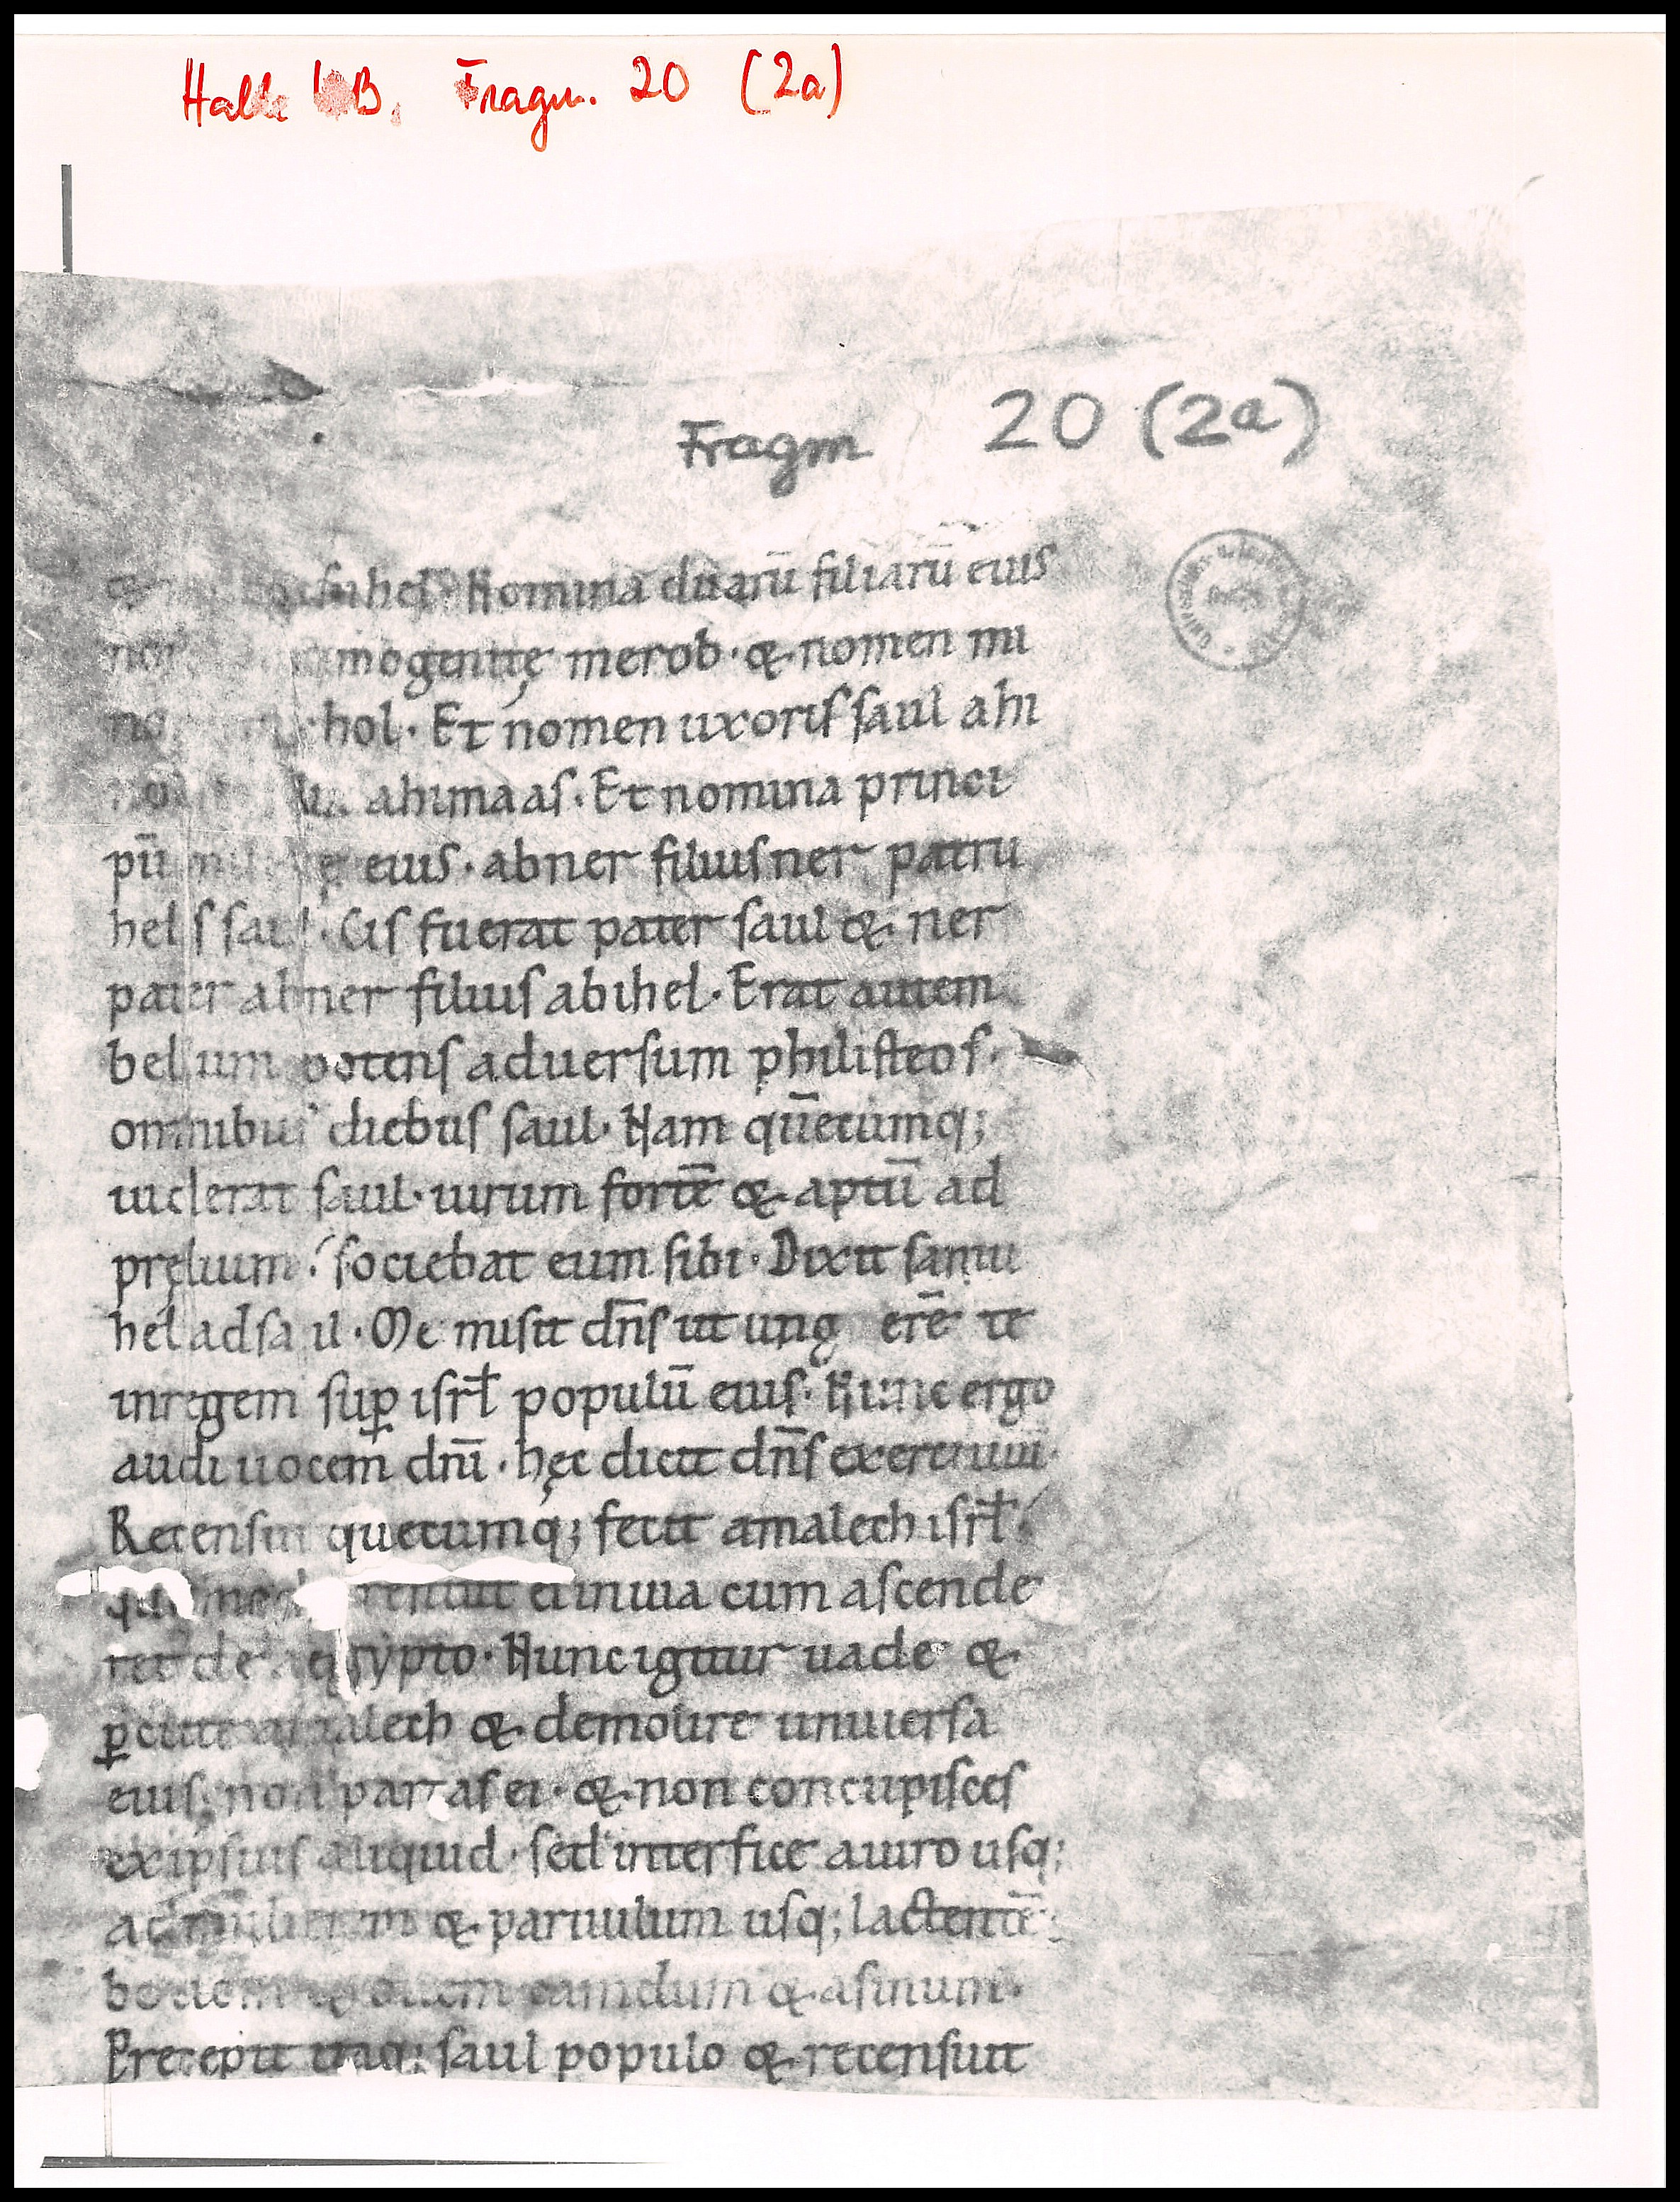 Halle LB, Fragm. 20 (2a)
Fragm 20 (2a)
Nomina duarū filiarū eius
merob · & nomen mi
hol · Et nomen uxoris saul ahi
ahimaas · Et nomina princi
pū eius · abner filius ner patru
helis saul · Cis fuerat pater saul & ner
pater abner filius abihel · Erat autem
bellum potens aduersum philisteos ·
omnibus diebus saul · Nam quēcumq;
uiderat saul · uirum fortē & aptū ad
pręlium · sociebat eum sibi · Dixit samu
hel ad saul · Me misit dn̄s ut ungerē te
in regem suꝑ isrł populū eius · Nunc ergo
audi uocem dnī · hęc dicit dn̄s exercituū ·
Recensui quecumq; fecit amalech isrł ·
ei in uia cum ascende
ret de aegypto · Nunc igitur uade &
ꝑcute amalech & demolire uniuersa
eius, non parcas ei · & non concupisces
ex ipsius aliquid · sed interfice a uiro usq;
ad mulierem & paruulum usq; lactentē ·
bouem & ouem camelum & asinum ·
Precepit itaq; saul populo & recensuit